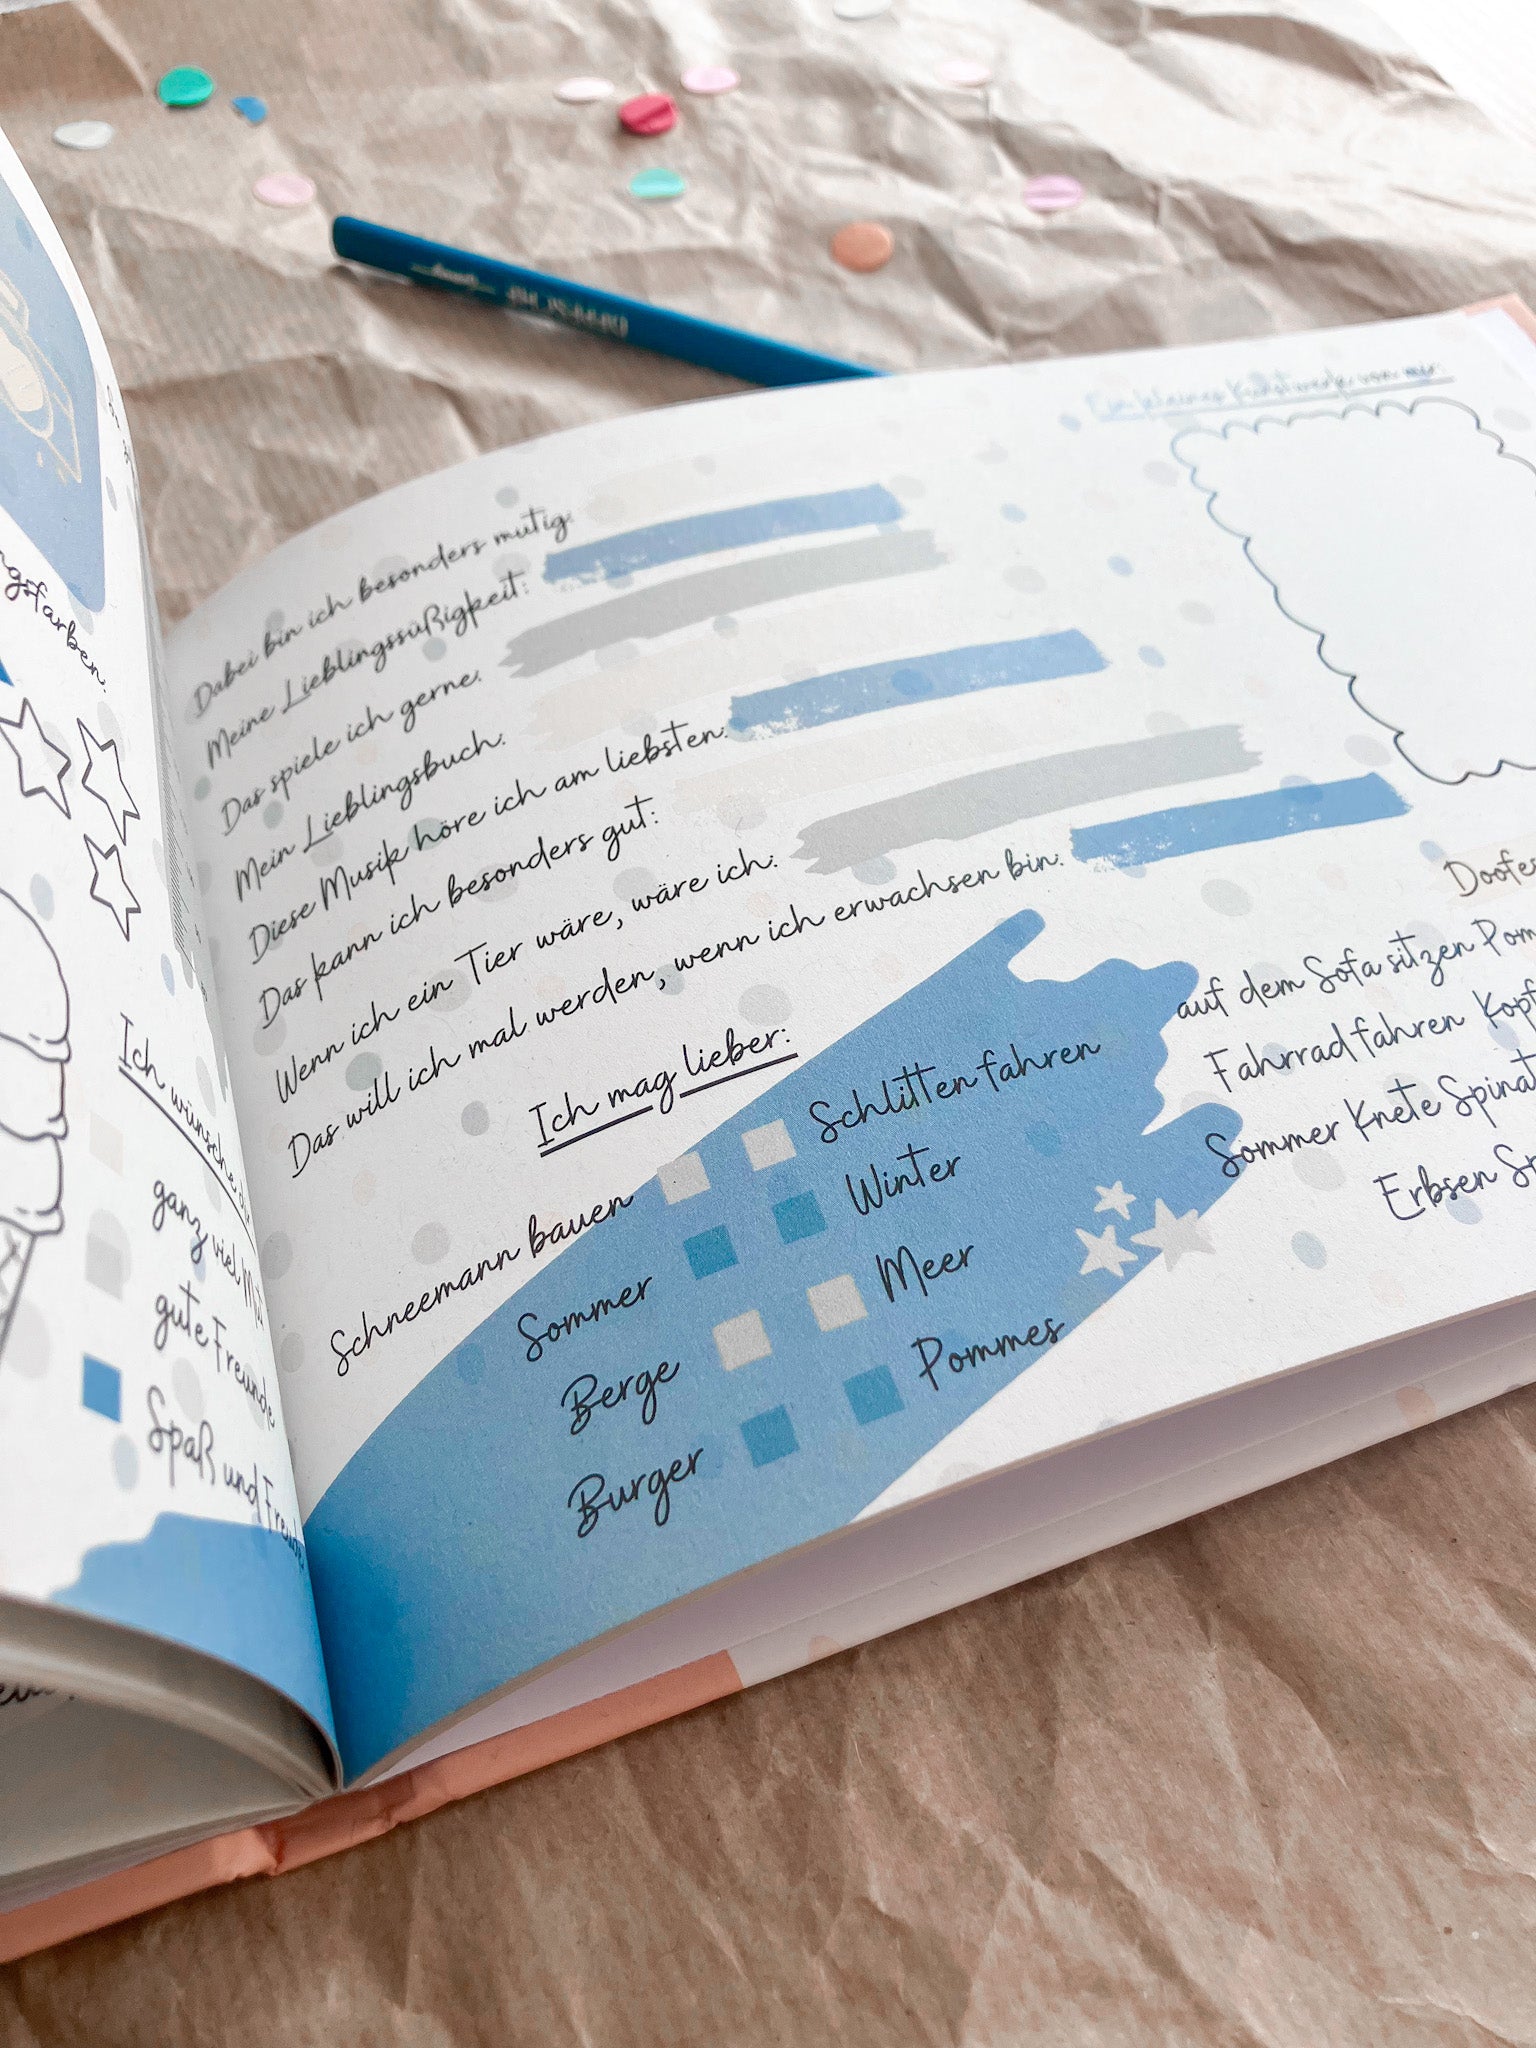 ngsfarben:
Ich wünsche dir
ganz viel Mut
gute Freunde
Spaß und Freude
Ein kleines Kunstwerk von mir:
Dabei bin ich besonders mutig:
Meine Lieblingssüßigkeit:
Das spiele ich gerne:
Mein Lieblingsbuch:
Diese Musik höre ich am liebsten:
Das kann ich besonders gut:
Wenn ich ein Tier wäre, wäre ich:
Das will ich mal werden, wenn ich erwachsen bin:
Ich mag lieber:
Schneemann bauen Schlittenfahren
Sommer Winter
Berge Meer
Burger Pommes
Doofes
auf dem Sofa sitzen Pom
Fahrrad fahren Kopf
Sommer Knete Spinat
Erbsen